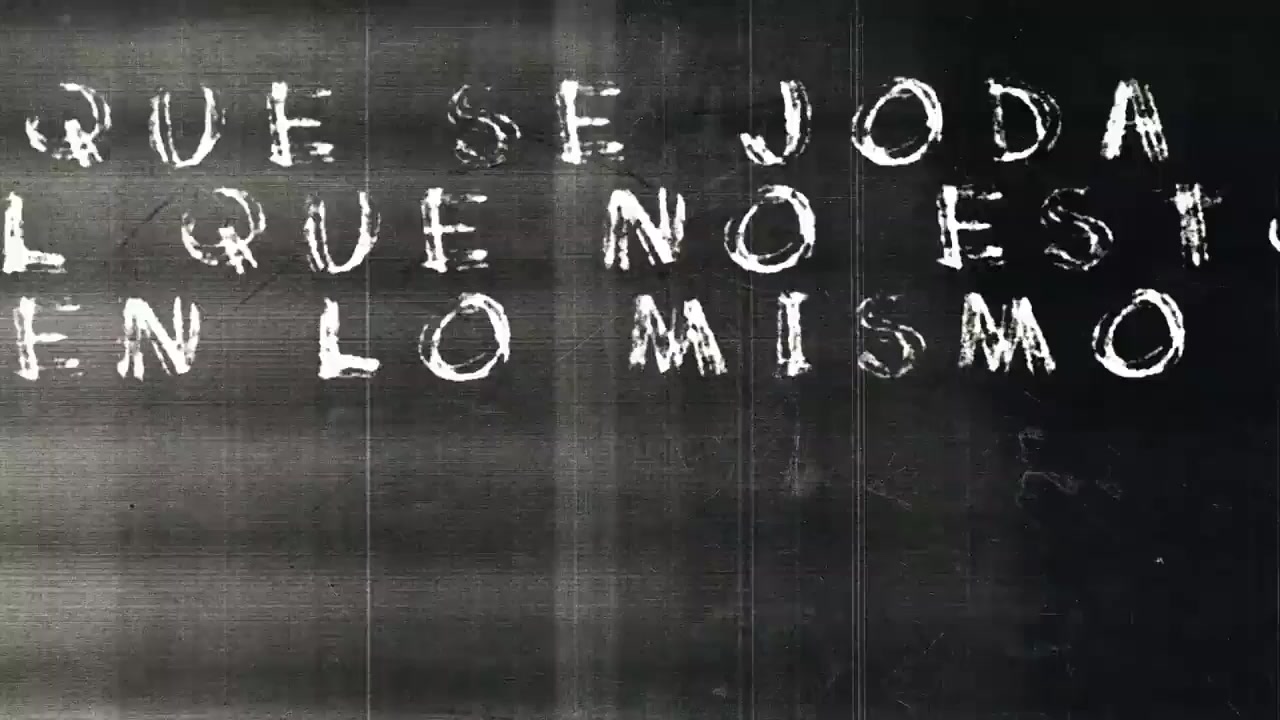 QUE SE JODA
L QUE NO EST
EN LO MISMO